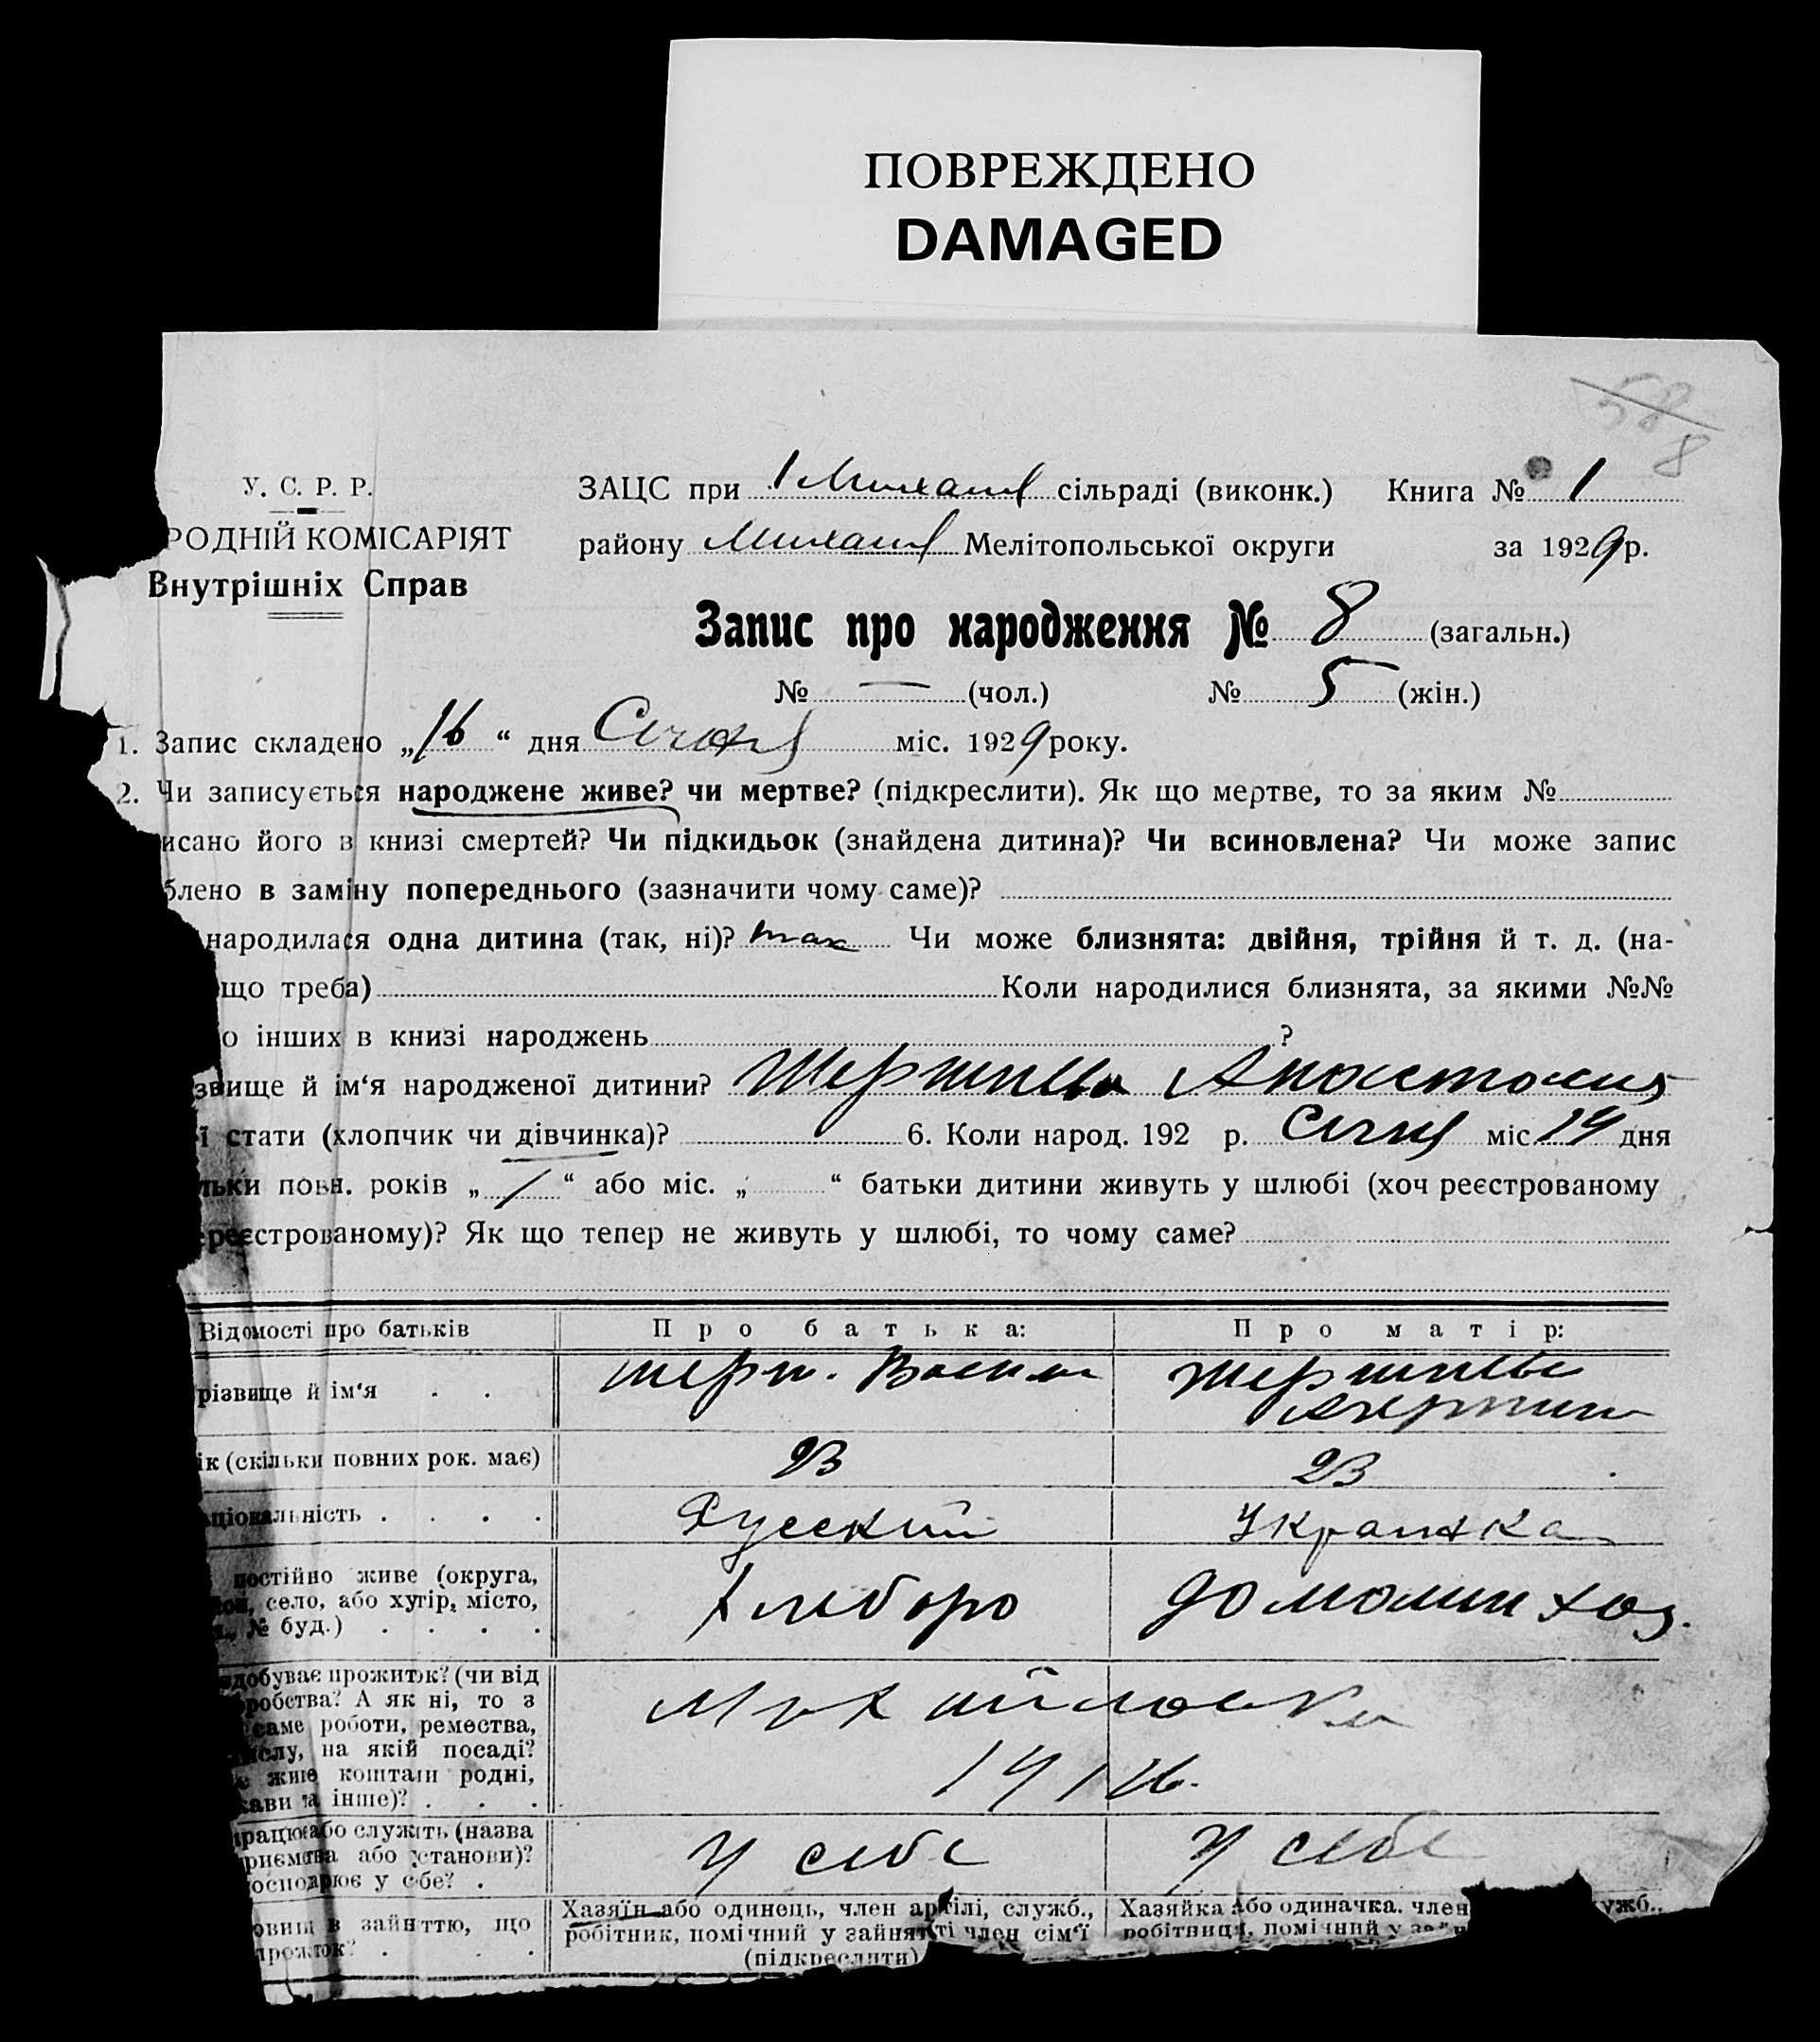 ПОВРЕЖДЕНО
DAMAGED
58
8
У. С. Р. Р.
РОДНІЙ КОМІСАРІЯТ
Внутрішніх Справ
ЗАЦС при 1 Михайл сільраді (виконк.) Книга № 1
району Михайл Мелітопольської округи за 1929 р.
Запис про народження № 8 (загальн.)
№ — (чол.) № 5 (жін.)
1. Запис складено „16“ дня Січня міс. 1929 року.
2. Чи записується народжене живе? чи мертве? (підкреслити). Як що мертве, то за яким №
исано його в книзі смертей? Чи підкидьок (знайдена дитина)? Чи всиновлена? Чи може запис
блено в заміну попереднього (зазначити чому саме)?
народилася одна дитина (так, ні)? так Чи може близнята: двійня, трійня й т. д. (на-
що треба) Коли народилися близнята, за якими №№
о інших в книзі народжень ?
звище й ім‘я народженої дитини?
ї стати (хлопчик чи дівчинка)? 6. Коли народ. 192 р. Січня міс 14 дня
льки повн. років „ 1 “ або міс. „ “ батьки дитини живуть у шлюбі (хоч реєстрованому
ереєстрованому)? Як що тепер не живуть у шлюбі, то чому саме?
Відомості про батьків Про батька: Про матір:
різвище й ім‘я . .
ік (скільки повних рок. має) 23 23
ціональність . . . . Русский Українка
постійно живе (округа,
село, або хутір, місто,
№ буд.) . . . . Хлеборо домашн хоз.
здобуває прожиток? (чи від
робства? А як ні, то з
саме роботи, ремества,
слу, на якій посаді?
живе коштами родні,
кави та інше)? . . . Михайловка
працює або служить (назва
приємства або установи)?
осподарює у себе? . у себе у себе
овищ в зайняттю, що
прожиток? . . . Хазяїн або одинець, член артілі, служб.,
робітник, помічний у зайнятті член сім‘ї
(підкреслити)
Хазяйка або одиначка, член ужб.,
робітниця, помічний у зайн